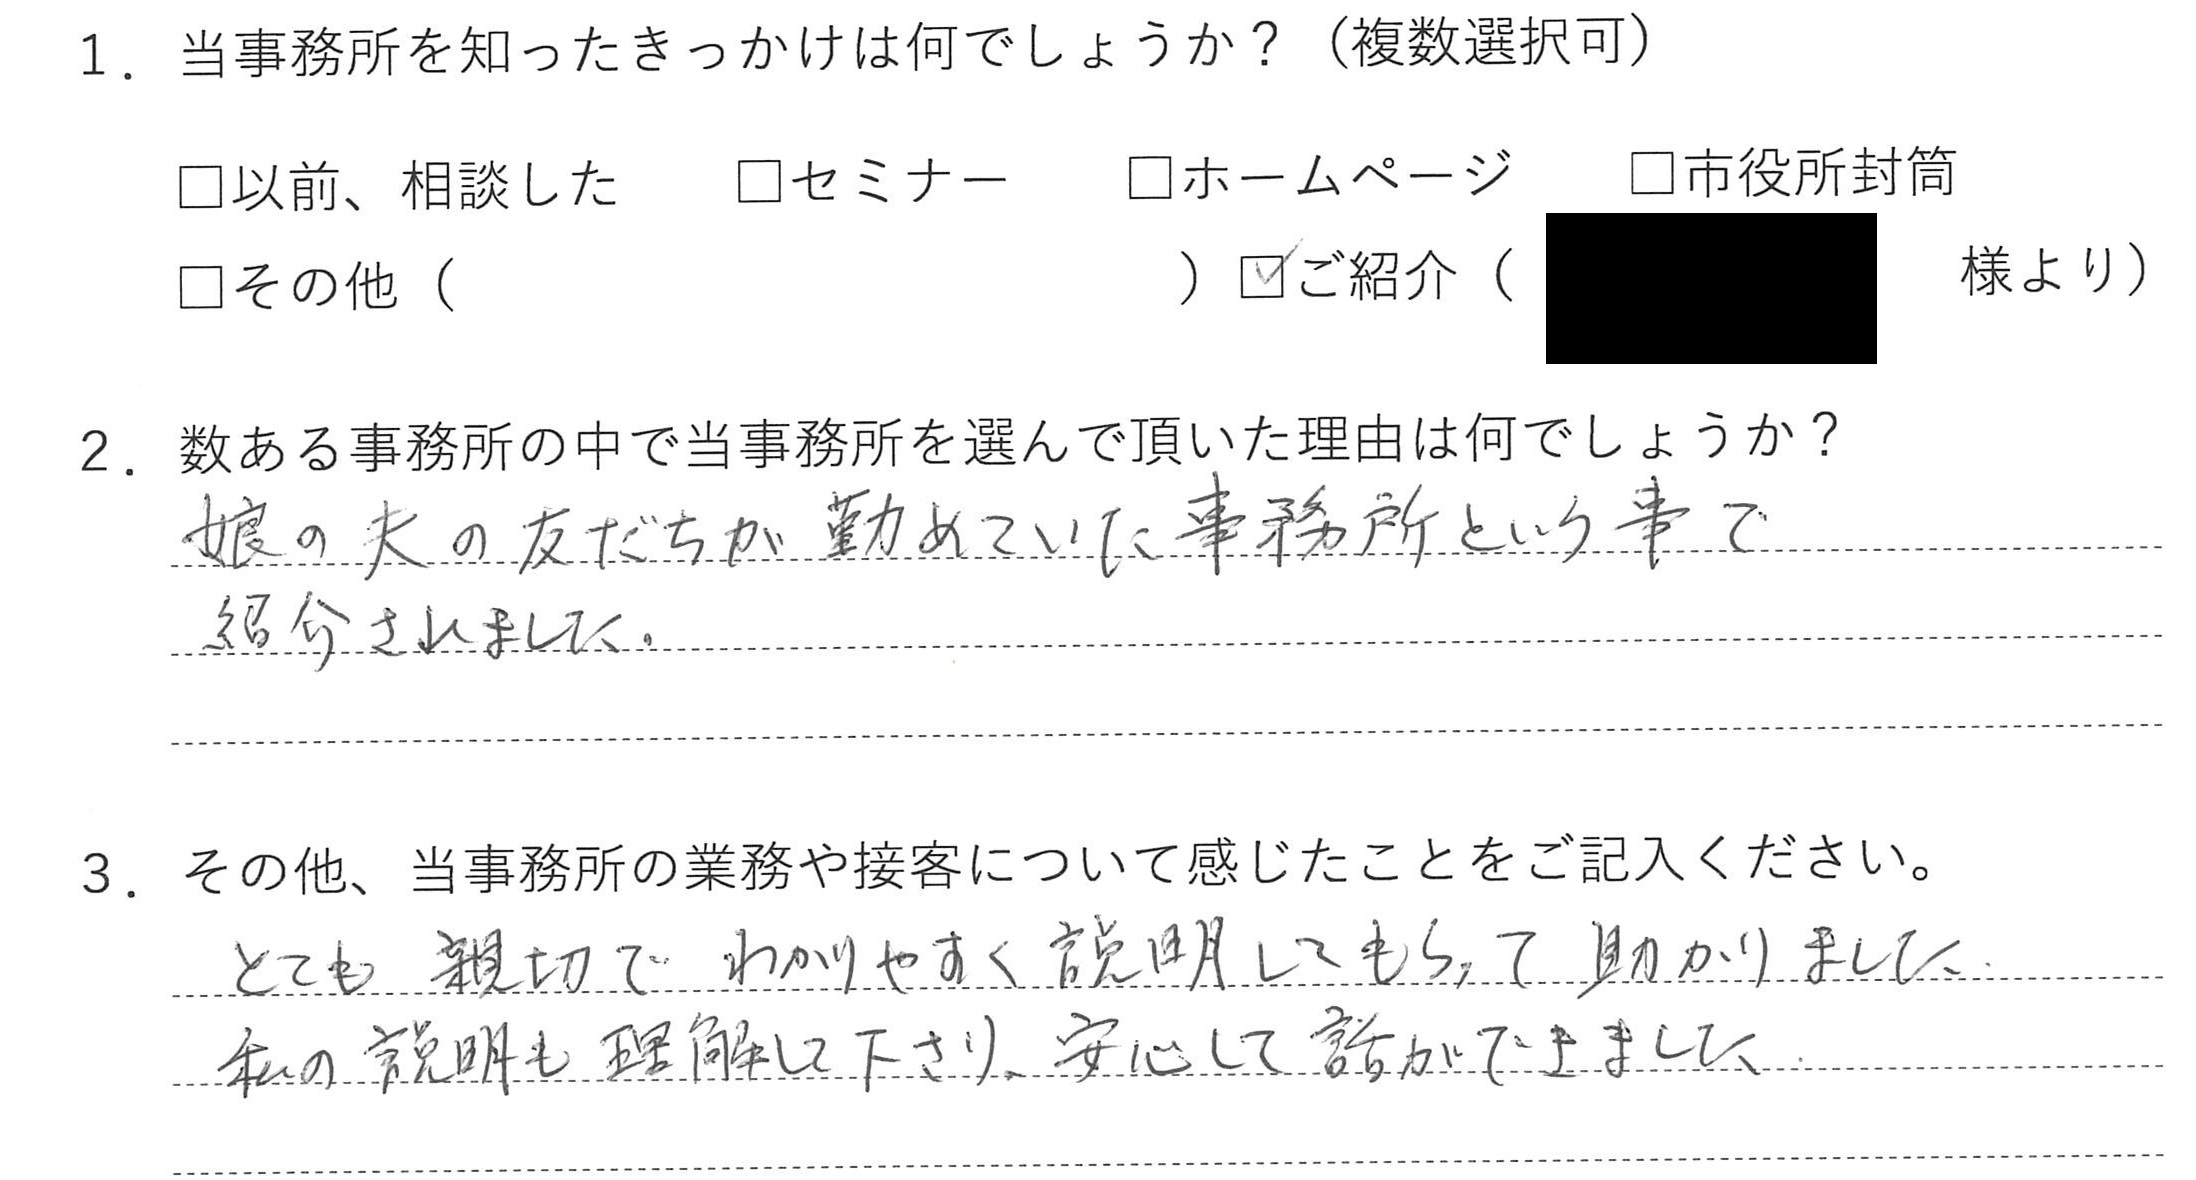 1．当事務所を知ったきっかけは何でしょうか？（複数選択可）
□以前、相談した　□セミナー　□ホームページ　□市役所封筒
□その他（　　　）☑ご紹介（　　　様より）
2．数ある事務所の中で当事務所を選んで頂いた理由は何でしょうか？
娘の夫の友だちが勤めていた事務所という事で
紹介されました。
3．その他、当事務所の業務や接客について感じたことをご記入ください。
とても親切でわかりやすく説明してもらって助かりました.
私の説明も理解して下さり、安心して話ができました.